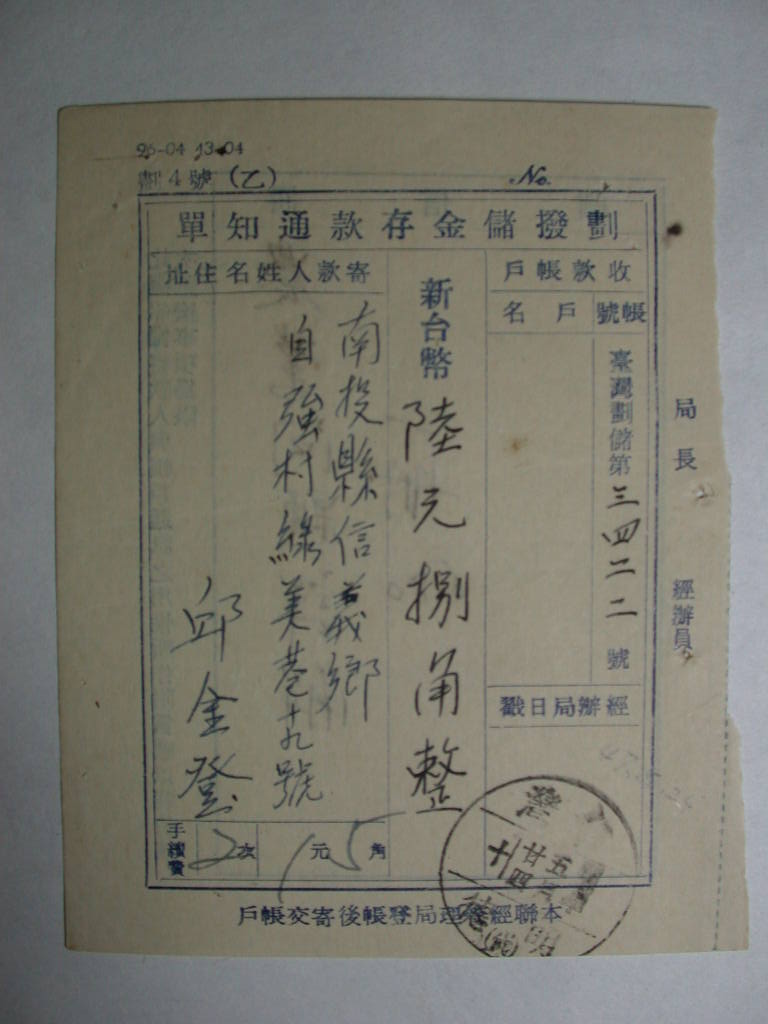 劃4號(乙)
No.
劃撥儲金存款通知單
收款帳戶
帳號
戶名
臺灣劃儲第三四二二號
經辦局日戳
新台幣陸元捌角整
寄款人姓名住址
南投縣信義鄉
自強村綠美巷十九號
邱金登
手續費
2次
1元5角
局長
經辦員
本聯經辦理局登帳後寄交帳戶